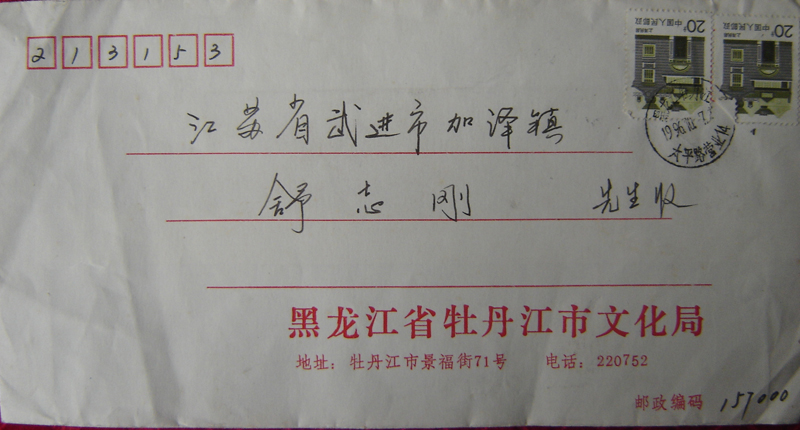 213153
20分
中国人民邮政
20分
中国人民邮政
江苏省武进市加泽镇
舒志刚 先生收
黑龙江省牡丹江市文化局
地址：牡丹江市景福街71号 电话：220752
邮政编码 157000